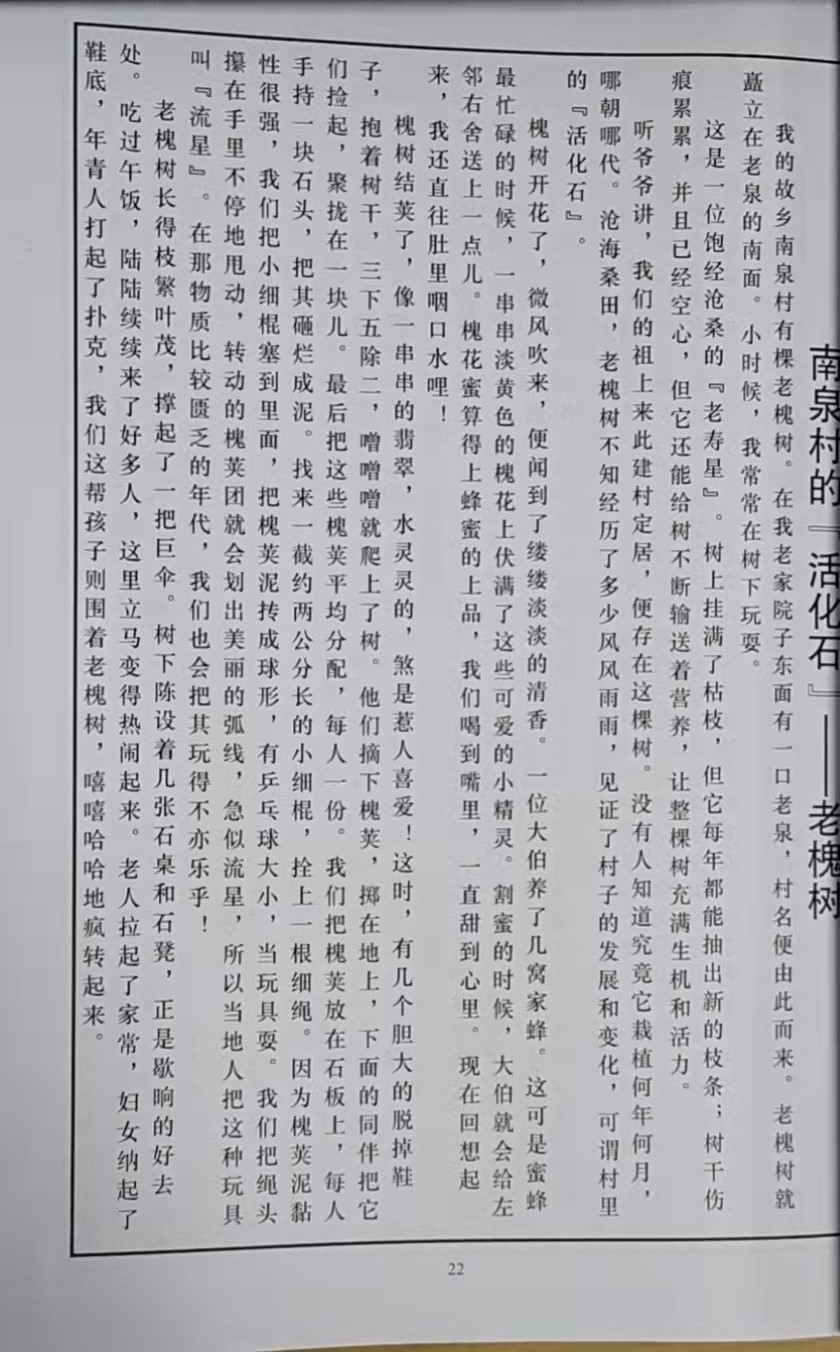 南泉村的『活化石』——老槐树
我的故乡南泉村有棵老槐树。在我老家院子东面有一口老泉，村名便由此而来。老槐树就
矗立在老泉的南面。小时候，我常常在树下玩耍。
这是一位饱经沧桑的『老寿星』。树上挂满了枯枝，但它每年都能抽出新的枝条；树干伤
痕累累，并且已经空心，但它还能给树不断输送着营养，让整棵树充满生机和活力。
听爷爷讲，我们的祖上来此建村定居，便存在这棵树。没有人知道究竟它栽植何年何月，
哪朝哪代。沧海桑田，老槐树不知经历了多少风风雨雨，见证了村子的发展和变化，可谓村里
的『活化石』。
槐树开花了，微风吹来，便闻到了缕缕淡淡的清香。一位大伯养了几窝家蜂。这可是蜜蜂
最忙碌的时候，一串串淡黄色的槐花上伏满了这些可爱的小精灵。割蜜的时候，大伯就会给左
邻右舍送上一点儿。槐花蜜算得上蜂蜜的上品，我们喝到嘴里，一直甜到心里。现在回想起
来，我还直往肚里咽口水哩！
槐树结荚了，像一串串的翡翠，水灵灵的，煞是惹人喜爱！这时，有几个胆大的脱掉鞋
子，抱着树干，三下五除二，噌噌噌就爬上了树。他们摘下槐荚，掷在地上，下面的同伴把它
们捡起，聚拢在一块儿。最后把这些槐荚平均分配，每人一份。我们把槐荚放在石板上，每人
手持一块石头，把其砸烂成泥。找来一截约两公分长的小细棍，拴上一根细绳。因为槐荚泥黏
性很强，我们把小细棍塞到里面，把槐荚泥抟成球形，有乒乓球大小，当玩具耍。我们把绳头
攥在手里不停地甩动，转动的槐荚团就会划出美丽的弧线，急似流星，所以当地人把这种玩具
叫『流星』。在那物质比较匮乏的年代，我们也会把其玩得不亦乐乎！
老槐树长得枝繁叶茂，撑起了一把巨伞。树下陈设着几张石桌和石凳，正是歇晌的好去
处。吃过午饭，陆陆续续来了好多人，这里立马变得热闹起来。老人拉起了家常，妇女纳起了
鞋底，年青人打起了扑克，我们这帮孩子则围着老槐树，嘻嘻哈哈地疯转起来。
22